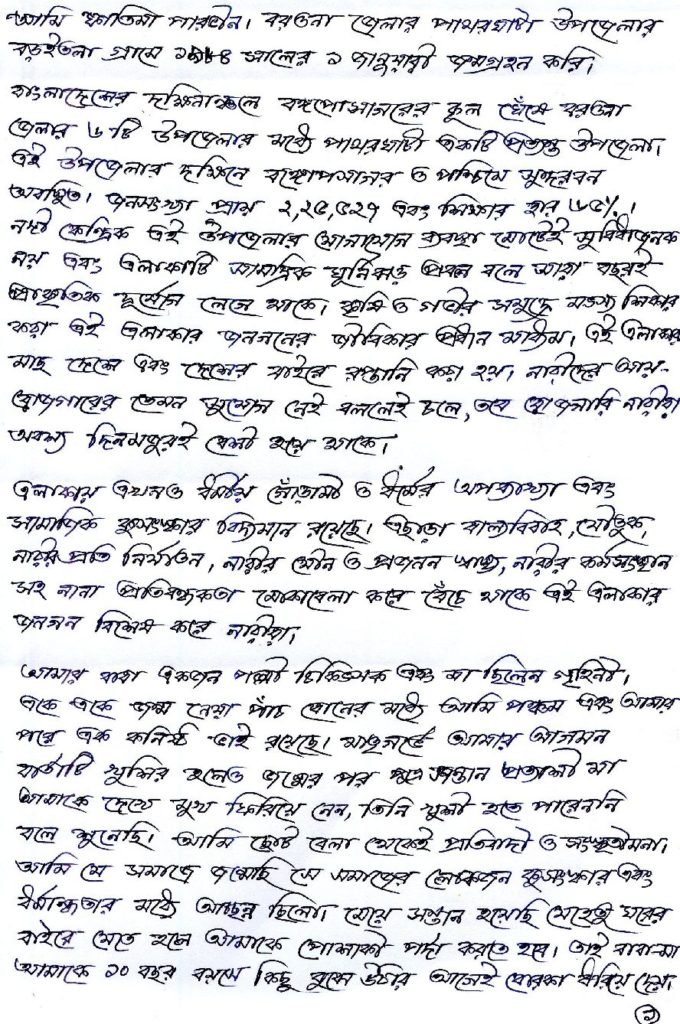 আমি ফাতিমা পারভীন। বরগুনা জেলার পাথরঘাটা উপজেলার
বড়ইতলা গ্রামে ১৯৮৪ সালের ১ জানুয়ারী জন্মগ্রহন করি।
বাংলাদেশের দক্ষিনাঞ্চলে বঙ্গপোসাগরের কূল ঘেঁষে বরগুনা
জেলার ৬ টি উপজেলার মধ্যে পাথরঘাটা একটি প্রত্যন্ত উপজেলা।
এই উপজেলার দক্ষিনে বঙ্গোপসাগর ও পশ্চিমে সুন্দরবন
অবস্থিত। জনসংখ্যা প্রায় ২,২৫,৫২৭ এবং শিক্ষার হার ৬৫%।
নদী কেন্দ্রিক এই উপজেলার যোগাযোগ ব্যবস্থা মোটেই সুবিধাজনক
নয় এবং এলাকাটি সামদ্রিক ঘূর্নিঝড় প্রবন বলে সারা বছরই
প্রাকৃতিক দূর্যোগ লেগে থাকে। কৃষি ও গভীর সমুদ্রে মৎস্য শিকার
করা এই এলাকার জনগনের জীবিকার প্রধান মাধ্যম। এই এলাকার
মাছ দেশে এবং দেশের বাইরে রপ্তানি করা হয়। নারীদের আয়-
রোজগারের তেমন সুযোগ নেই বললেই চলে, তবে রোজগারি নারীরা
অবশ্য দিনমজুরই বেশী হয়ে থাকে।
এলাকায় এখনও ধর্মীয় গোঁড়ামী ও ধর্মের অপব্যাখ্যা এবং
সামাজিক কুসংস্কার বিদ্যমান রয়েছে। এছাড়া বাল্যবিবাহ, যৌতুক,
নারীর প্রতি নির্যাতন, নারীর যৌন ও প্রজনন স্বাস্থ্য, নারীর কর্মসংস্থান
সহ নানা প্রতিবন্ধকতা মোকাবেলা করে বেঁচে থাকে এই এলাকার
জনগন বিশেষ করে নারীরা।
আমার বাবা একজন পল্লী চিকিৎসক এবং মা ছিলেন গৃহিনী।
একে একে জন্ম নেয়া পাঁচ বোনের মধ্যে আমি পঞ্চম এবং আমার
পরে এক কনিষ্ঠ ভাই রয়েছে। মাতৃগর্ভে আমার আগমন
বার্তাটি খুশির হলেও জন্মের পর পুত্র সন্তান প্রত্যাশী মা
আমাকে দেখে মুখ ফিরিয়ে নেন, তিনি খুশী হতে পারেননি
বলে শুনেছি। আমি ছোট বেলা থেকেই প্রতিবাদী ও সংস্কৃতীমনা।
আমি যে সমাজে জন্মেছি সে সমাজের লোকজন কুসংস্কার এবং
ধর্মান্ধতার মধ্যে আচ্ছন্ন ছিলো। মেয়ে সন্তান হয়েছি যেহেতু ঘরের
বাইরে যেতে হলে আমাকে পোশাকী পর্দা করতে হবে। তাই বাবা-মা
আমাকে ১০ বছর বয়সে কিছু বুঝে উঠার আগেই বোরকা ধরিয়ে দেয়।
১